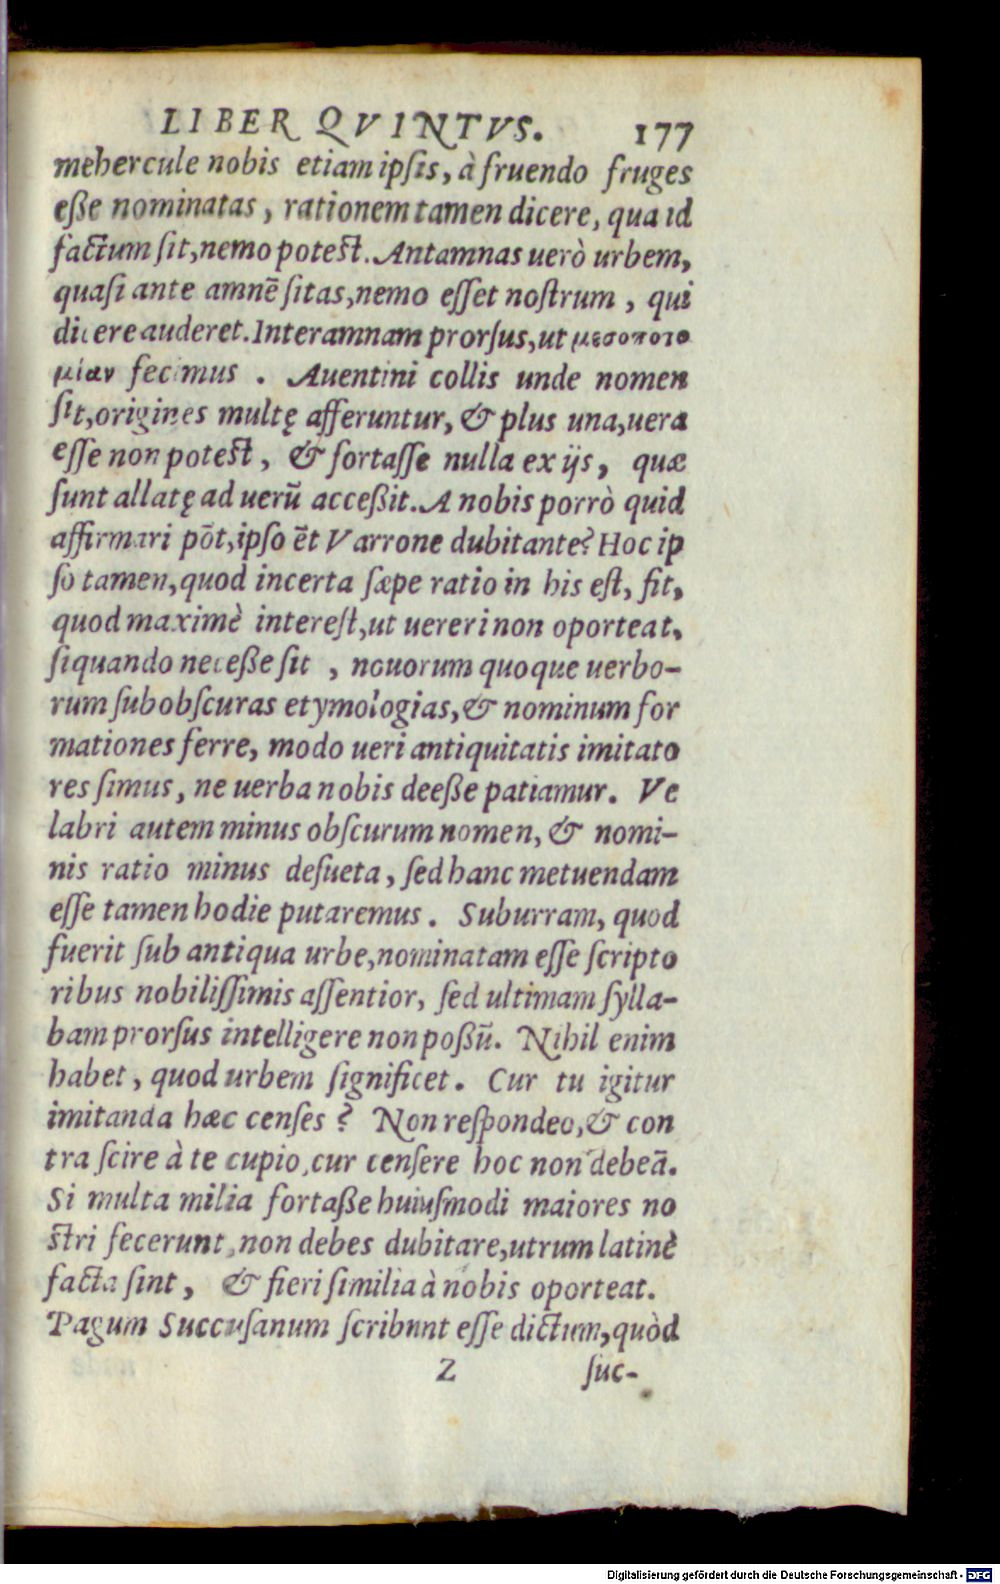 LIBER QVINTVS. 177
mehercule nobis etiam ipsis, à fruendo fruges
eße nominatas, rationem tamen dicere, qua id
factum sit, nemo potest. Antamnas uerò urbem,
quasi ante amnē sitas, nemo esset nostrum, qui
dicere auderet. Interamnam prorsus, ut μεσοποτα
μίαν fecimus. Auentini collis unde nomen
sit, origines multę afferuntur, & plus una, uera
esse non potest, & fortasse nulla ex ijs, quæ
sunt allatę ad uerū acceßit. A nobis porrò quid
affirmari pōt, ipso ēt Varrone dubitante? Hoc ip
so tamen, quod incerta sæpe ratio in his est, fit,
quod maximè interest, ut uereri non oporteat,
siquando neceße sit, nouorum quoque uerbo-
rum subobscuras etymologias, & nominum for
mationes ferre, modo ueri antiquitatis imitato
res simus, ne uerba nobis deeße patiamur. Ve
labri autem minus obscurum nomen, & nomi-
nis ratio minus desueta, sed hanc metuendam
esse tamen hodie putaremus. Suburram, quod
fuerit sub antiqua urbe, nominatam esse scripto
ribus nobilissimis assentior, sed ultimam sylla-
bam prorsus intelligere non poßū. Nihil enim
habet, quod urbem significet. Cur tu igitur
imitanda hæc censes? Non respondeo, & con
tra scire à te cupio, cur censere hoc non debeā.
Si multa milia fortaße huiusmodi maiores no
stri fecerunt, non debes dubitare, utrum latinè
facta sint, & fieri similia à nobis oporteat.
Pagum Succusanum scribunt esse dictum, quòd
Z suc-
Digitalisierung gefördert durch die Deutsche Forschungsgemeinschaft - DFG